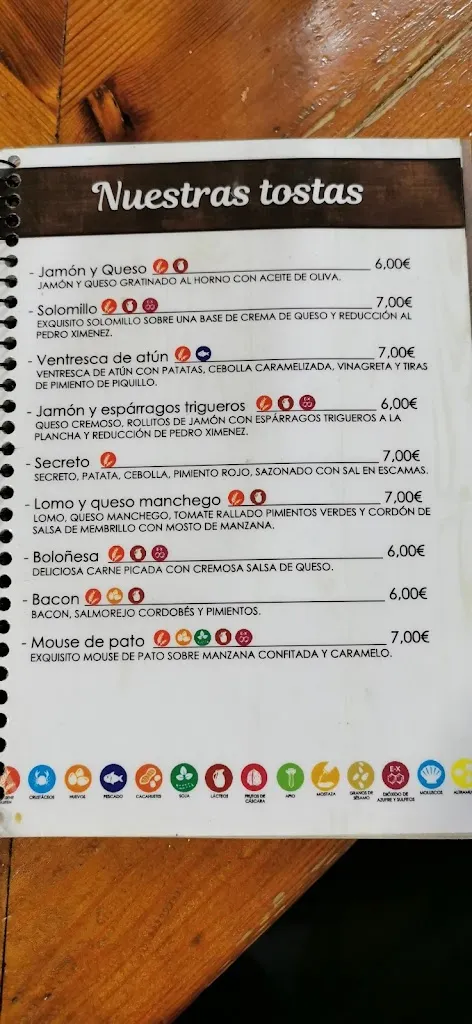 Nuestras tostas
- Jamón y Queso 6,00€
JAMÓN Y QUESO GRATINADO AL HORNO CON ACEITE DE OLIVA.
- Solomillo 7,00€
EXQUISITO SOLOMILLO SOBRE UNA BASE DE CREMA DE QUESO Y REDUCCIÓN AL
PEDRO XIMENEZ.
- Ventresca de atún 7,00€
VENTRESCA DE ATÚN CON PATATAS, CEBOLLA CARAMELIZADA, VINAGRETA Y TIRAS
DE PIMIENTO DE PIQUILLO.
- Jamón y espárragos trigueros 6,00€
QUESO CREMOSO, ROLLITOS DE JAMÓN CON ESPÁRRAGOS TRIGUEROS A LA
PLANCHA Y REDUCCIÓN DE PEDRO XIMENEZ.
- Secreto 7,00€
SECRETO, PATATA, CEBOLLA, PIMIENTO ROJO, SAZONADO CON SAL EN ESCAMAS.
- Lomo y queso manchego 7,00€
LOMO, QUESO MANCHEGO, TOMATE RALLADO PIMIENTOS VERDES Y CORDÓN DE
SALSA DE MEMBRILLO CON MOSTO DE MANZANA.
- Boloñesa 6,00€
DELICIOSA CARNE PICADA CON CREMOSA SALSA DE QUESO.
- Bacon 6,00€
BACON, SALMOREJO CORDOBÉS Y PIMIENTOS.
- Mouse de pato 7,00€
EXQUISITO MOUSE DE PATO SOBRE MANZANA CONFITADA Y CARAMELO.
E-X
CRUSTÁCEOS HUEVOS PESCADO CACAHUETES SOJA LÁCTEOS FRUTOS DE CÁSCARA APIO MOSTAZA GRANOS DE SÉSAMO DIÓXIDO DE AZUFRE Y SULFITOS MOLUSCOS